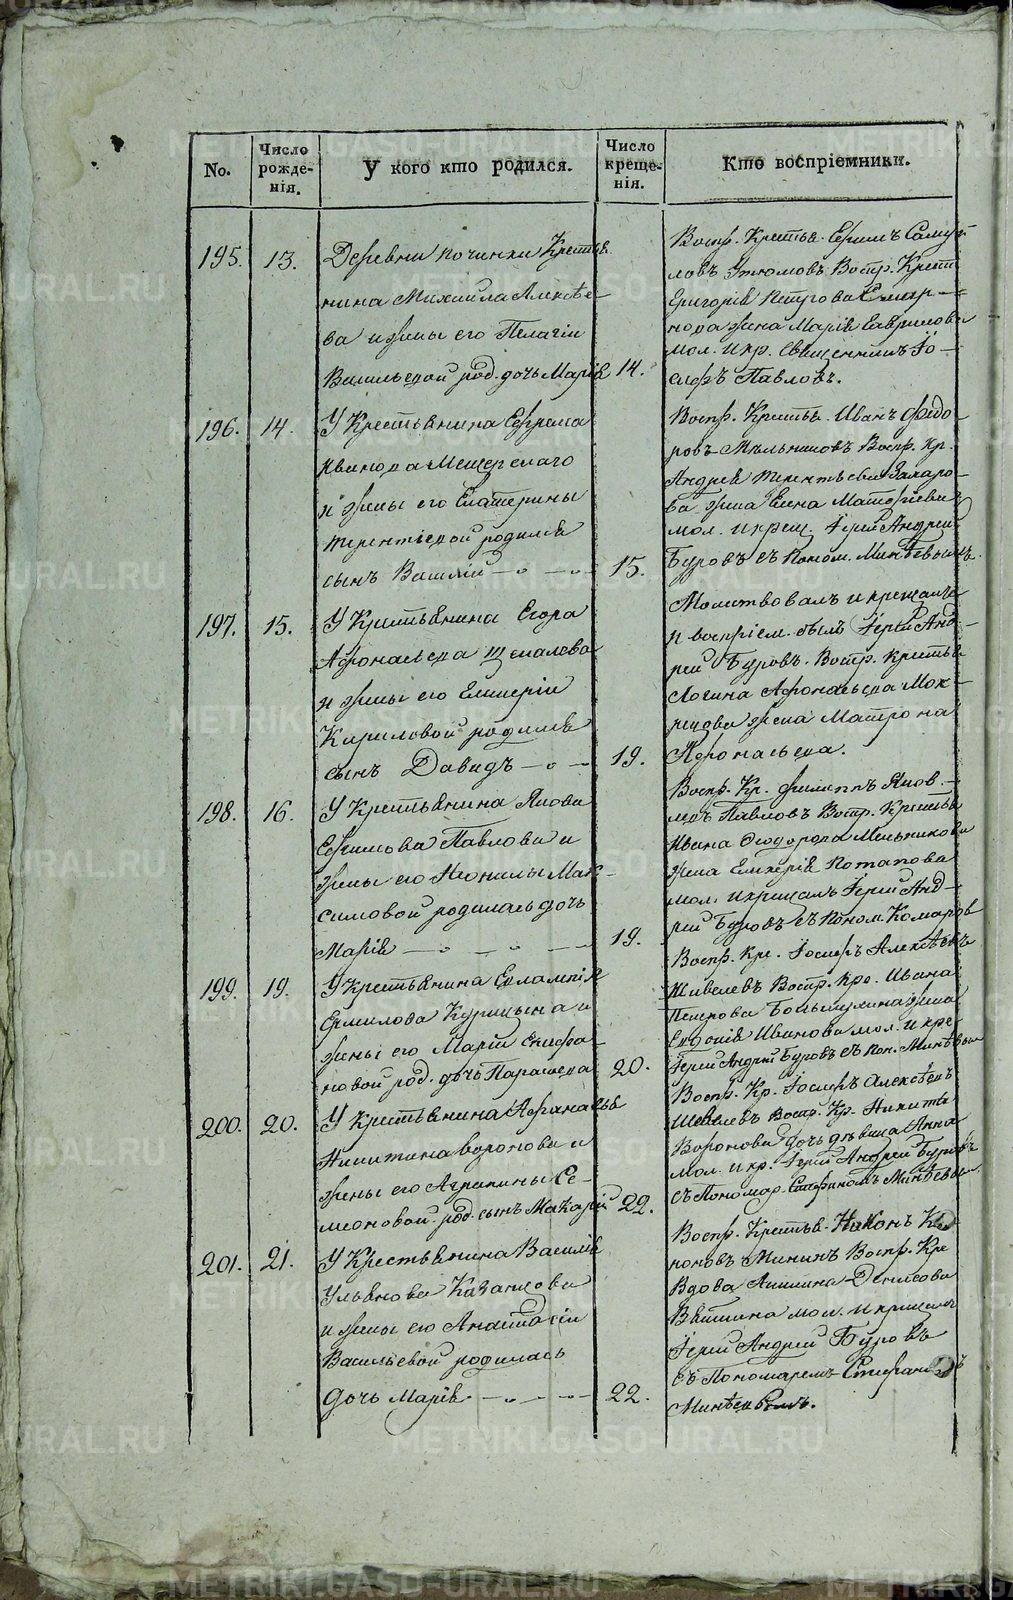 No.
Число рожде-нія.
У кого кто родился.
Число креще-нія.
Кто воспріемники.
195. 13.
Деревни Починки Крестья
нина Михаила Алексѣе-
ва и жены его Пелагіи
Васильевой род. дочь Марія 14.
Воспр. Крестья. Ефимъ Самуй-
ловъ Воспр. Крест
Григорія Петрова
жена Марія Гаврилова
мол. и кр. Священникъ Іо-
сифъ Павловъ.
196. 14.
У Крестьянина Ефрема
Иванова Мещерскаго
и жены его Екатерины
Терентіевой родился
сынъ Василій 15.
Воспр. Крестья. Иванъ Федо-
ровъ Мельниковъ Воспр. Кр.
Андрея Терентьева Захаро-
ва жена Елена Матѳіева
мол. и крещ. Іерей Андрей
Буровъ съ Поном. Минѣевымъ.
197. 15.
У Крестьянина Егора
Афонасьева
и жены его Гликеріи
Кириловой родился
сынъ Давидъ 19.
Молитвовалъ и крещалъ
и воспріем. былъ Іерей Анд-
рей Буровъ. Воспр. Крестья
Логина Афонасьева Мок-
жена Матрона
Афонасьева.
198. 16.
У Крестьянина Якова
Ефимова Павлова и
жены его Неонилы Мак-
симовой родилась дочь
Марія 19.
Воспр. Кр. Филиппъ Яков-
левъ Павловъ Воспр. Крестья
Ивана Ѳеодорова Мельникова
жена Гликерія Потапова
мол. и крещалъ Іерей Анд-
рей Буровъ съ Поном. Комаров
199. 19.
У Крестьянина Евлампія
Ермилова Курицына и
жены его Маріи Епифа-
новой род. дочь Параскева 20.
Воспр. Кре. Іосифъ Алексѣевъ
Шевелевъ Воспр. Кре. Ивана
Петрова жена
Евдокія Иванова мол. и кре-
Іерей Андрей Буровъ съ Пон. Минѣевы
200. 20.
У Крестьянина Афанасья
Никитина Воронова и
жены его Агрипины Се-
меоновой род. сынъ Макарій 22.
Воспр. Кр. Іосифъ Алексѣевъ
Шевелевъ Воспр. Кр. Никиты
Воронова дочь дѣвица Анна
мол. и кр. Іерей Андрей Буровъ
съ Пономар. Стефаномъ Минѣевы
201. 21.
У Крестьянина Василія
Ульянова Казанцова
и жены его Анастасіи
Васильевой родилась
дочь Марія 22.
Воспр. Крестья. Никонъ
Мининъ Воспр. Кре
Вдова Денисова
Вяткина мол. и крещалъ
Іерей Андрей Буровъ
съ Пономаремъ Стефан
Минѣевымъ.
METRIKI.GASO-URAL.RU